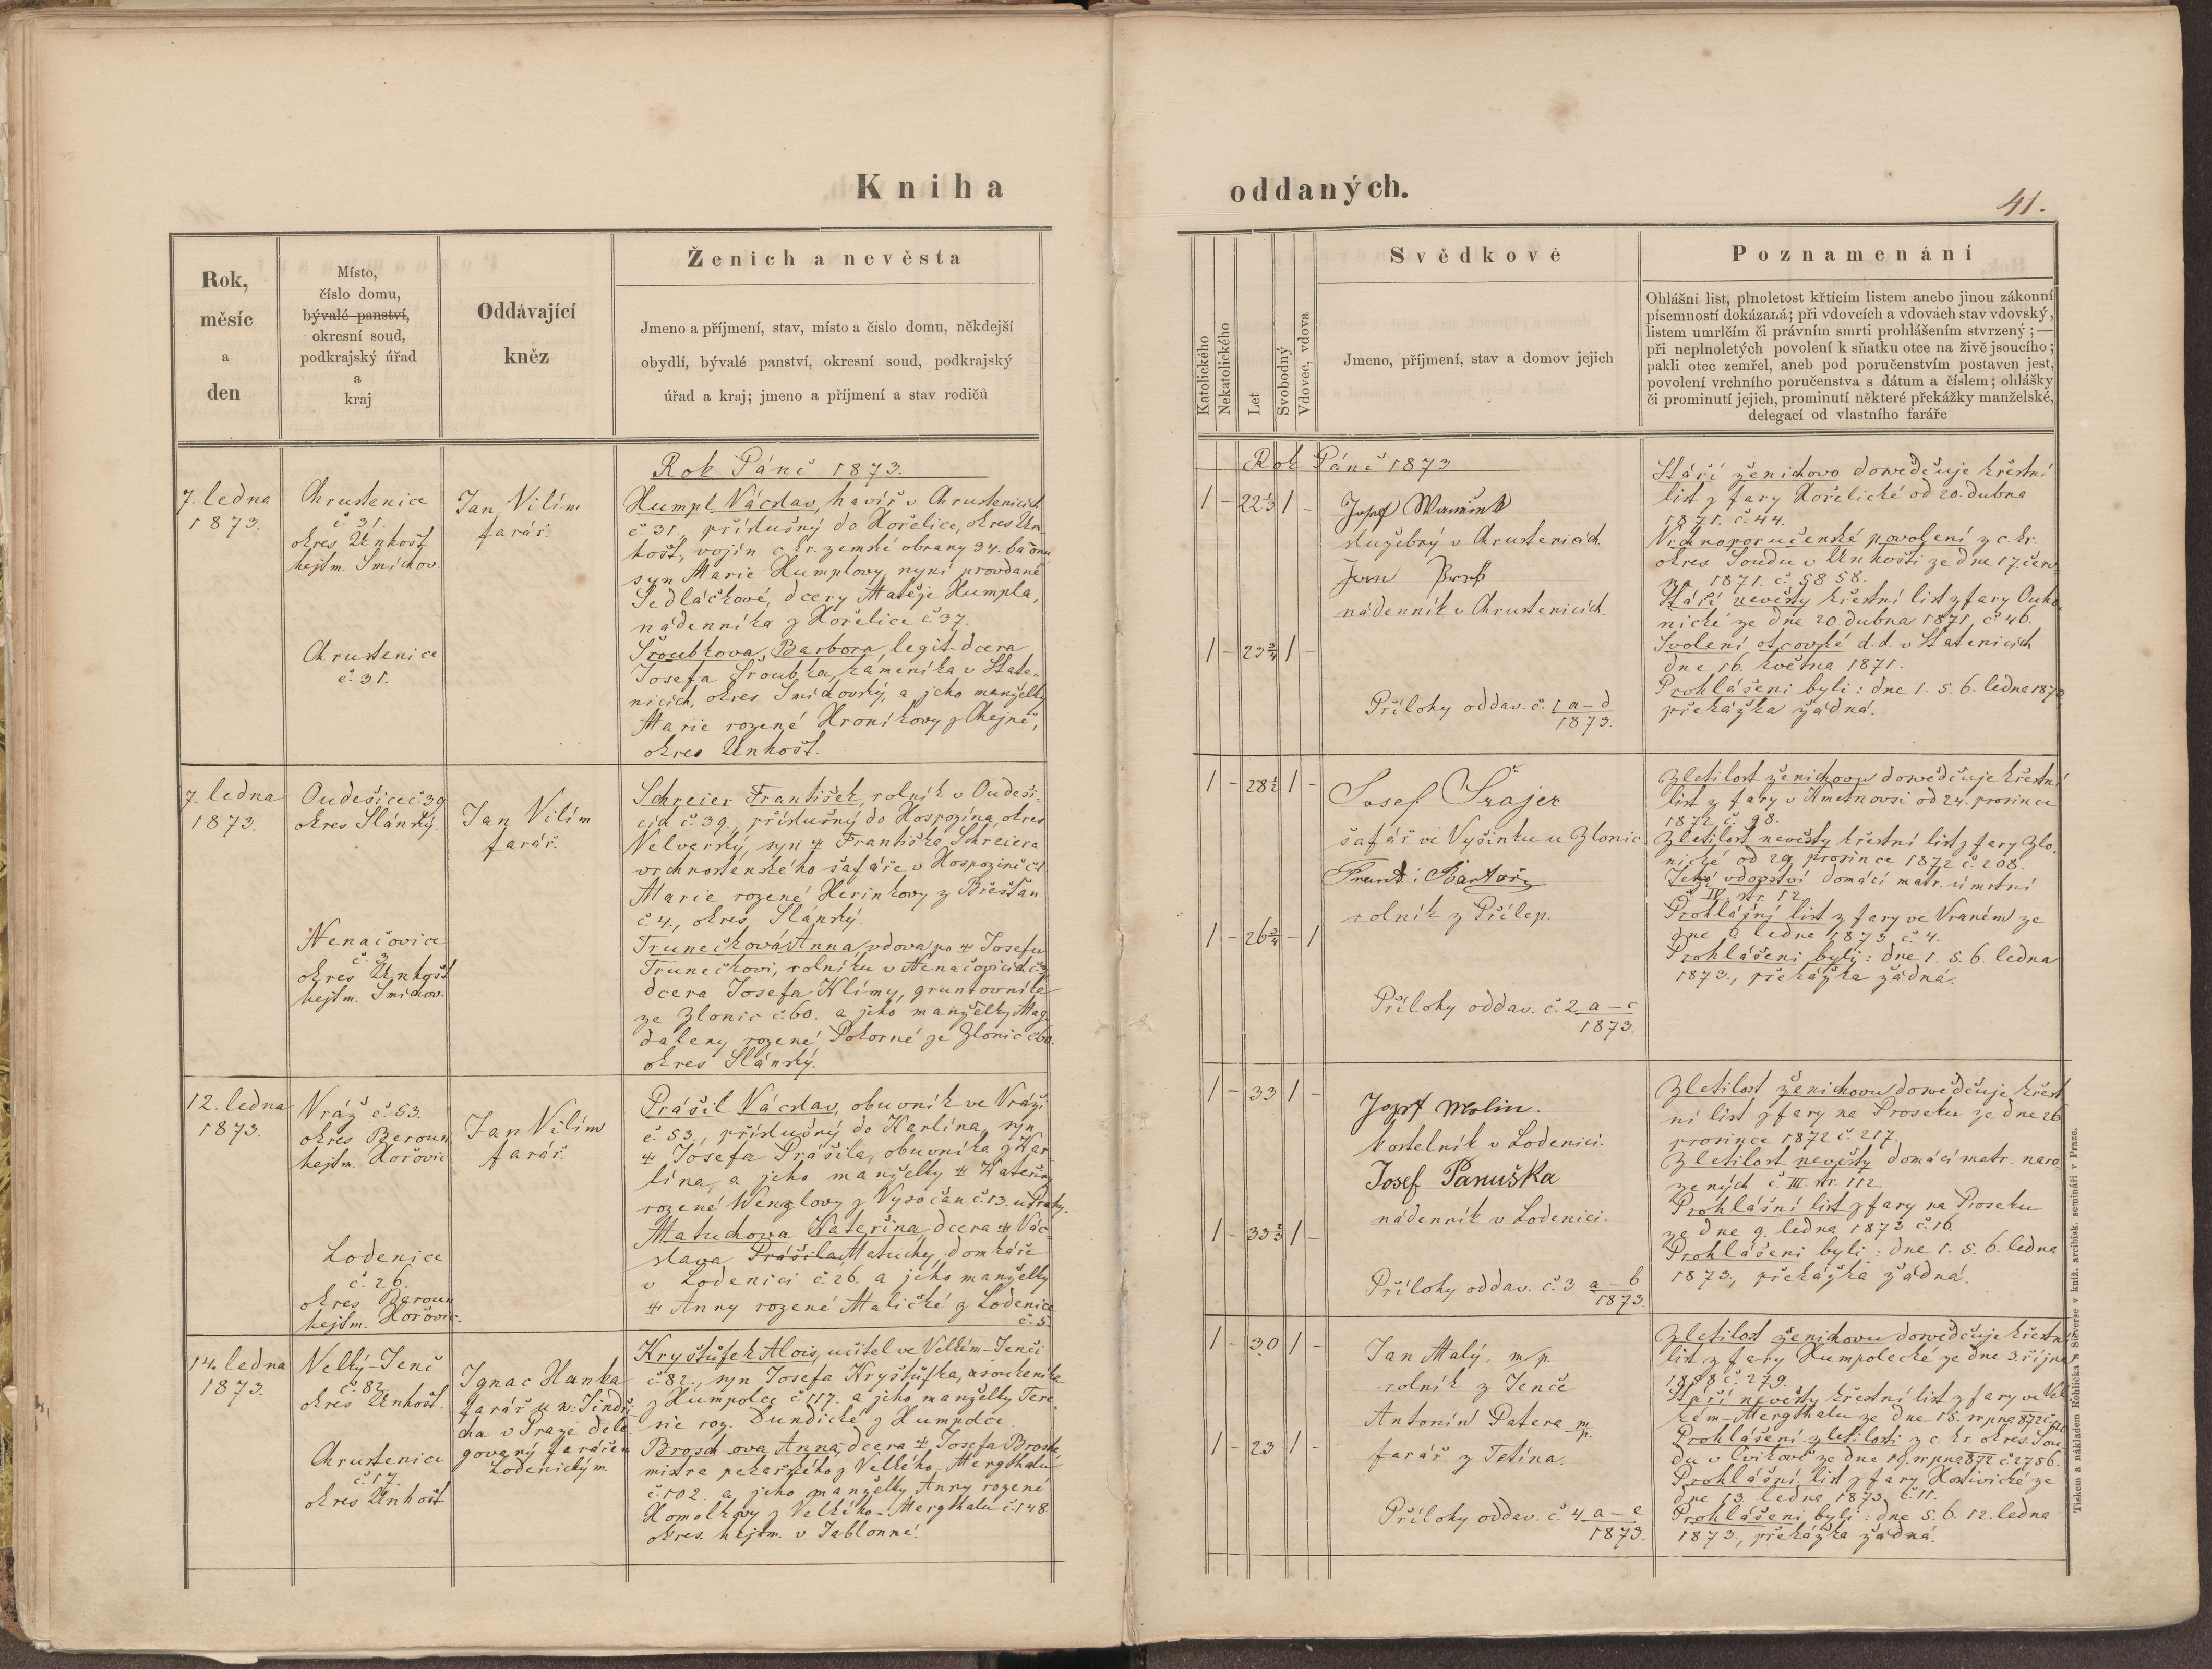 Kniha
Rok,
měsíc
a
den
Místo,
číslo domu,
bývalé panství,
okresní soud,
podkrajský úřad
a
kraj
Oddávající
kněz
Ženich a nevěsta
Jmeno a příjmení, stav, místo a čislo domu, někdejší
obydlí, bývalé panství, okresní soud, podkrajský
úřad a kraj; jmeno a příjmení a stav rodičů
Rok Páně 1873.
7. ledna
1873.
Chrustenice
č. 31.
okres Unhošť
hejtm. Smíchov.
Chrustenice
č. 31.
Jan Vilím
farář.
Humpl Václav, havíř v Chrustenicích
č. 31, příslušný do Hořelice, okres Un
hošť, vojín c. kr. zemské obrany 34. baonu
syn Marie Humplovy, nyní provdané
Sedláčkové, dcery Matěje Humpla,
nádenníka z Hořelice č. 37.
Šroubkova Barbora, legit. dcera
Josefa Šroubka, kameníka v State-
nicích, okres Smíchovský, a jeho manželky
Marie rozené Hroníkovy z Chejně,
okres Unhošť.
7. ledna
1873.
Oudešice č. 39
okres Slánský.
Nenačovice
č. 3
okres Unhošť
hejtm. Smíchov.
Jan Vilím
farář.
Schreier František, rolník v Oudeši-
cích č. 39, příslušný do Hospozína, okres
Velvarský, syn ✠ Františka Schreiera
vrchnostenského šafáře v Hospozíně č. 1
Marie rozené Herinkovy z Břešťan
č. 4, okres Slánský.
Trunečková Anna, vdova po ✠ Josefu
Trunečkovi, rolníku v Nenačovicích č. 3
dcera Josefa Klímy, gruntovníka
ze Zlonic č. 60. a jeho manželky Mag-
daleny rozené Pokorné ze Zlonic č. 60.
okres Slánský.
12. ledna
1873.
Vráž č. 53.
okres Beroun
hejtm. Hořovic
Lodenice
č. 26.
okres Beroun
hejtm. Hořovic.
Jan Vilím
farář.
Prášil Václav, obuvník ve Vráži
č. 53., příslušný do Karlína, syn
✠ Josefa Prášila, obuvníka z Kar
lína, a jeho manželky ✠ Kateřiny
rozené Wenzlovy z Vysočan č. 13. u Prahy.
Matuchova Kateřina, dcera ✠ Vác
slava Prášila, Matuchy, domkáře
v Lodenici č. 26. a jeho manželky
✠ Anny rozené Maličké z Lodenice
č. 5.
14. ledna
1873.
Velký-Jenč
č. 82.
okres Unhošť.
Chrustenice
č. 17.
okres Unhošť
Ignac Hanka
farář u sv. Jindři
cha v Praze dele
govaný farářem
Lodenickým.
Kryštůfek Alois, učitel ve Velkém-Jenči
č. 82., syn Josefa Kryštůfka, soukeníka
z Humpolce č. 117. a jeho manželky Tere-
sie roz. Dundické z Humpolce.
Brosch-ova Anna, dcera ✠ Josefa Brosche,
mistra pekařského z Velkého-Mergthalu
č. 102. a jeho manželky Anny rozené
Homolkovy z Velkého-Mergthalu č. 148.
okres. hejtm. v Jablonné.
oddaných.
41.
Katolického
Nekatolického
Let
Svobodný
Vdovec, vdova
Svědkové
Jmeno, příjmení, stav a domov jejich
Poznamenání
Ohlášní list, plnoletost křtícím listem anebo jinou zákonní
písemností dokázaná; při vdovcích a vdovách stav vdovský,
listem umrlčím či právním smrti prohlášením stvrzený; —
při neplnoletých povolení k sňatku otce na živě jsoucího;
pakli otec zemřel, aneb pod poručenstvím postaven jest,
povolení vrchního poručenstva s dátum a číslem; ohlášky
či prominutí jejich, prominutí některé překážky manželské,
delegací od vlastního faráře
Rok Páně 1873
1 – 22 1/3 1 –
Josef
služebný v Chrustenicích.
Jan
nádenník v Chrustenicích.
1 – 23 3/4 1 –
Přílohy oddav. č. 1 a–d
1873.
Stáří ženichovo dosvědčuje křestní
list z fary Hořelické od 20. dubna
1871. č. 44.
Vrchnoporučenské povolení z c. kr.
okres. Soudu v Unhošti ze dne 17. čer
1871. č. 5858.
Stáří nevěsty křestní list z fary Ouho-
nické ze dne 20. dubna 1871, č. 46.
Svolení otcovské d.d. v Statenicích
dne 16. května 1871.
Prohlášeni byli: dne 1. 5. 6. ledna 1873
překážka žádná.
1 – 28 1/2 1 –
Josef Šrajer
šafář ve Vyšínku u Zlonic
Frant: Bartoň
rolník z Přílep.
1 – 26 3/4 – 1
Přílohy oddav. č. 2 a–c
1873.
Zletilost ženichovu dosvědčuje křestní
list z fary v Kmetnovsi od 24. prosince
1872 č. 98.
Zletilost nevěsty křestní list z fary Zlo-
nické od 29. prosince 1872 č. 208.
Její vdovství domácí matr. úmrtní
č. IV. str. 12.
Prohlášní list z fary ve Vraném ze
dne 6. ledna 1873 č. 4.
Prohlášeni byli: dne 1. 5. 6. ledna
1873., překážka žádná.
1 – 33 1 –
Josef Merlin.
kostelník v Lodenici.
Josef Panuška
nádenník v Lodenici.
1 – 33 3/4 1 –
Přílohy oddav. č. 3 a–b
1873.
Zletilost ženichovu dosvědčuje křest
ní list z fary na Proseku ze dne 26
prosince 1872 č. 217.
Zletilost nevěsty domácí matr. naro
zených č. III. str. 112.
Prohlášní list z fary na Proseku
ze dne 9. ledna 1873 č. 16.
Prohlášeni byli: dne 1. 5. 6. ledna
1873., překážka žádná.
1 – 30 1 –
Jan Malý, m/p.
rolník z Jenče
Antonín Patera m/p.
farář z Tetína.
1 – 23 1 –
Přílohy oddav. č. 4 a–e
1873.
Zletilost ženichovu dosvědčuje křestní
list z fary Humpolecké ze dne 3. října
1858 č. 279.
Stáří nevěsty křestní list z fary ve Vel
kém-Mergthalu ze dne 15. srpna 1872 č.
Prohlášení zletilosti z c. kr. okres. Sou
du v Cvikově ze dne 19. srpna 1872 č. 2756.
Prohlášní list z fary Hostivické ze
dne 13. ledna 1873. č. 11.
Prohlášeni byli: dne 5. 6. 12. ledna
1873., překážka žádná.
Tiskem a nákladem Rohlíčka & Sieverse v kníž. arcibisk. semináři v Praze.